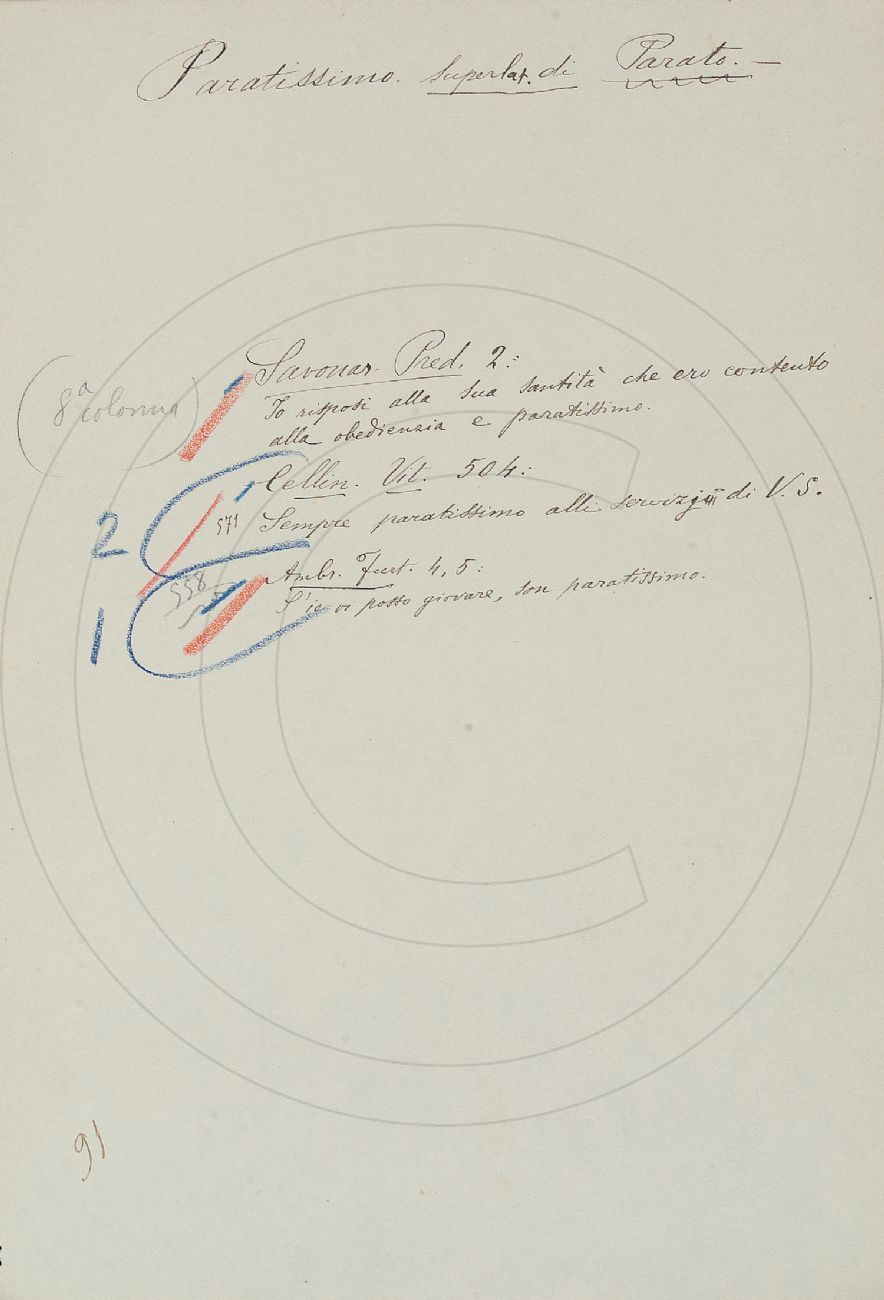 Paratissimo. Superlat. di Parato. —
Savonar. Pred. 2:
(8ª colonna)
Io risposi alla sua santità che ero contento
alla obedienzia e paratissimo.
Cellin. Vit. 504:
2
571
Sempre paratissimo alli servizj di V. S.
558
Ambr. Furt. 4, 5:
1
S'io vi posso giovare, son paratissimo.
91